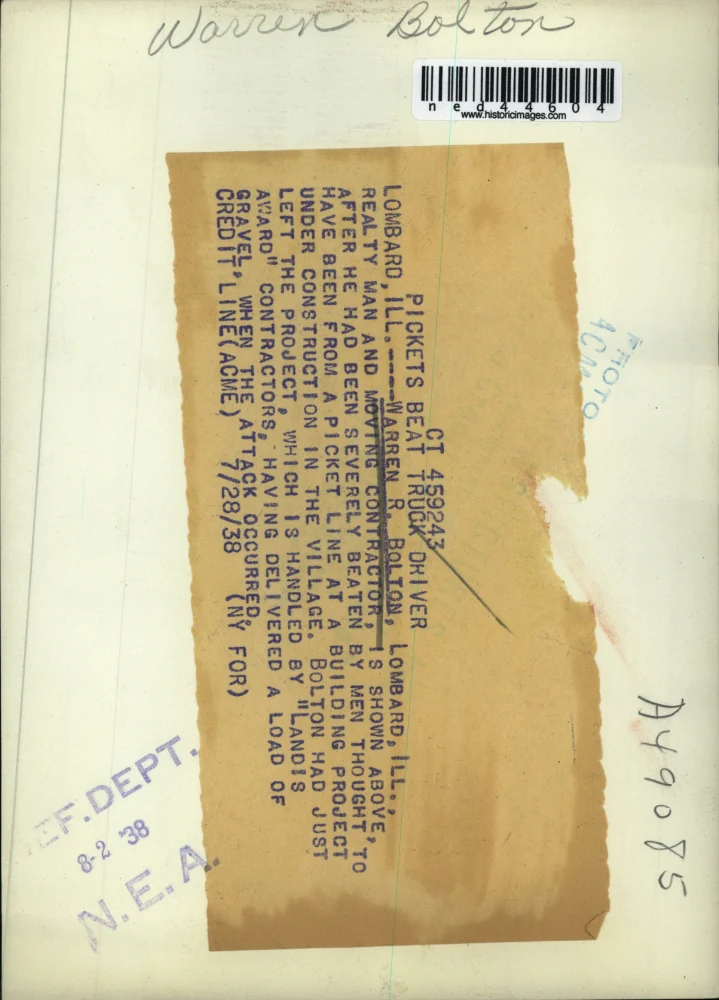 Warren Bolton
ned44604
www.historicimages.com
PHOTO
ACME
CT 459243
PICKETS BEAT TRUCK DRIVER
LOMBARD, ILL.----WARREN R. BOLTON, LOMBARD, ILL.,
REALTY MAN AND MOVING CONTRACTOR, IS SHOWN ABOVE,
AFTER HE HAD BEEN SEVERELY BEATEN BY MEN THOUGHT TO
HAVE BEEN FROM A PICKET LINE AT A BUILDING PROJECT
UNDER CONSTRUCTION IN THE VILLAGE. BOLTON HAD JUST
LEFT THE PROJECT, WHICH IS HANDLED BY "LANDIS
AWARD" CONTRACTORS, HAVING DELIVERED A LOAD OF
GRAVEL, WHEN THE ATTACK OCCURRED.
CREDIT LINE(ACME) 7/28/38 (NY FOR)
A49085
EF. DEPT.
8-2 '38
N.E.A.